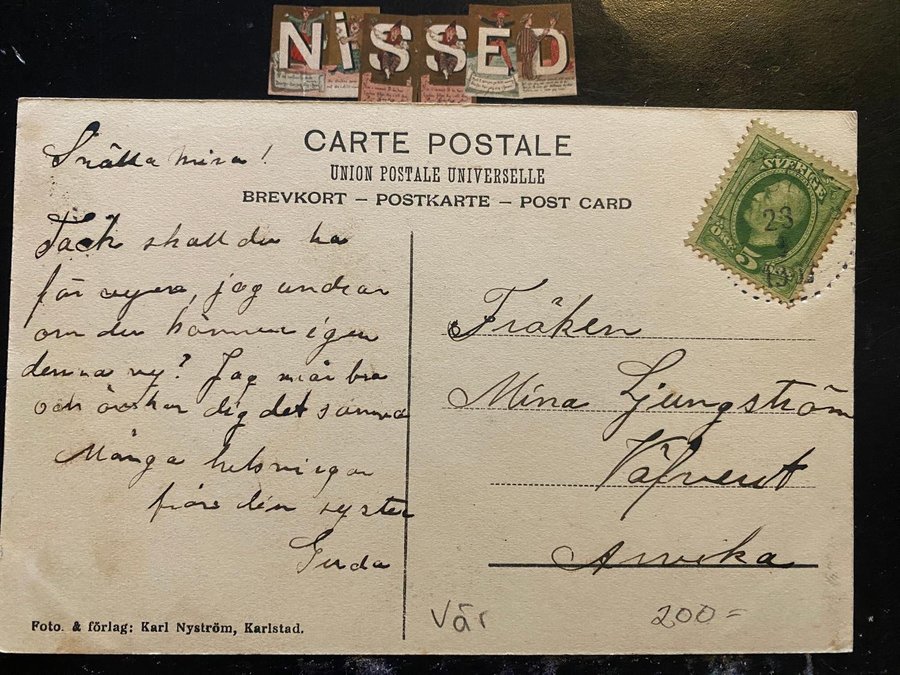 NiSSED
CARTE POSTALE
UNION POSTALE UNIVERSELLE
BREVKORT – POSTKARTE – POST CARD
SVERIGE
23
5
Snälla mina!
Tack skall du ha
för vyen, jag undrar
om du känner igen
denna vy? Jag mår bra
och önskar dig det samma
Många helsningar
från din syster
Gerda
Fröken
Mina Ljungström
Arvika
Foto. & förlag: Karl Nyström, Karlstad.
Vär
200=